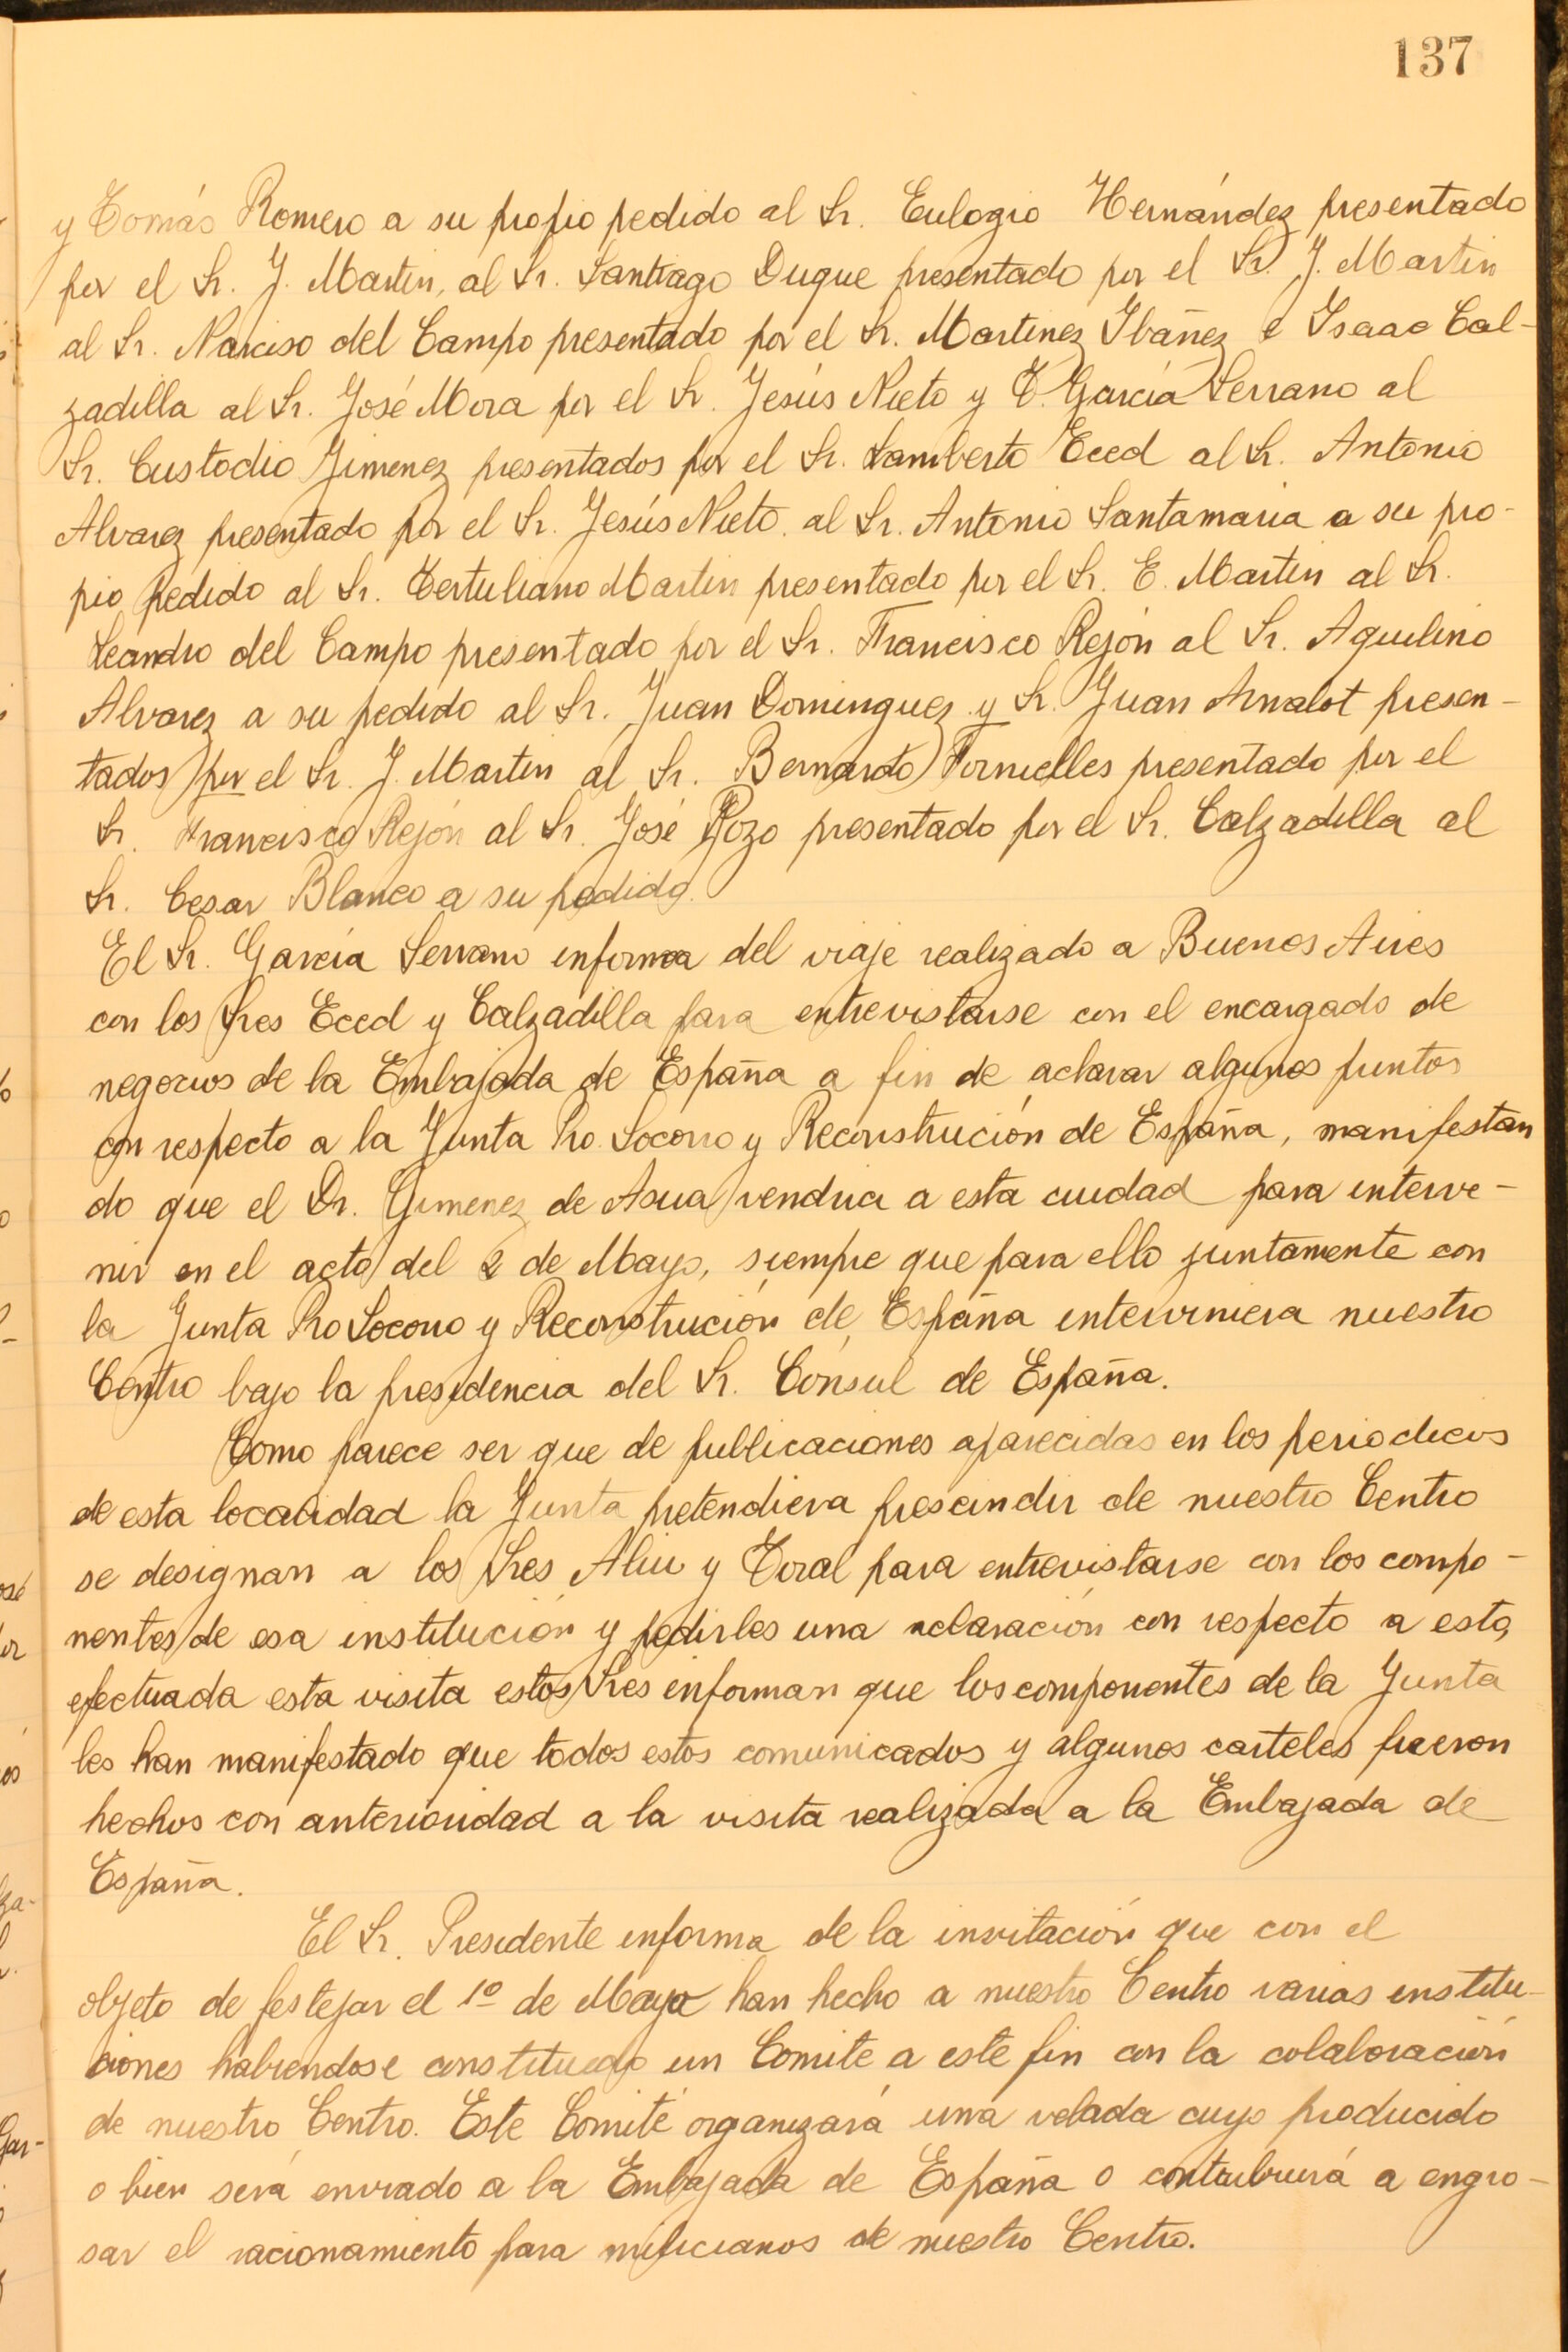 137
y Tomás Romero a su propio pedido al Sr. Eulogio Hernández presentado
por el Sr. J. Martin, al Sr. Santiago Duque presentado por el Sr. J. Martin
al Sr. Narciso del Campo presentado por el Sr. Martinez Ibañez e Isaac Cal-
zadilla al Sr. José Mora por el Sr. Jesús Nieto y T. García Serrano al
Sr. Custodio Jimenez presentados por el Sr. Lamberto Eced al Sr. Antonio
Alvarez presentado por el Sr. Jesús Nieto. al Sr. Antonio Santamaria a su pro-
pio pedido al Sr. Tertuliano Martin presentado por el Sr. E. Martin al Sr.
Leandro del Campo presentado por el Sr. Francisco Rejón al Sr. Aquilino
Alvarez a su pedido al Sr. Juan Dominguez y Sr. Juan Arnalot presen-
tados por el Sr. J. Martin al Sr. Bernardo Fornielles presentado por el
Sr. Francisco Rejón al Sr. José Pozo presentado por el Sr. Calzadilla al
Sr. Cesar Blanco a su pedido.
El Sr. García Serrano informa del viaje realizado a Buenos Aires
con los Sres Eced y Calzadilla para entrevistarse con el encargado de
negocios de la Embajada de España a fin de aclarar algunos puntos
con respecto a la Junta Pro Socorro y Reconstrución de España, manifestan
do que el Dr. Gimenez de Asua vendria a esta ciudad para interve-
nir en el acto del 2 de Mayo, siempre que para ello juntamente con
la Junta Pro Socorro y Reconstrución de España interviniera nuestro
Centro bajo la presidencia del Sr. Cónsul de España.
Como parece ser que de publicaciones aparecidas en los periodicos
de esta localidad la Junta pretendiera prescindir de nuestro Centro
se designan a los Sres Aliu y Toral para entrevistarse con los compo-
nentes de esa institución y pedirles una aclaración con respecto a esto,
efectuada esta visita estos Sres informan que los componentes de la Junta
les han manifestado que todos estos comunicados y algunos carteles fueron
hechos con anterioridad a la visita realizada a la Embajada de
España.
El Sr. Presidente informa de la invitación que con el
objeto de festejar el 1º de Mayo han hecho a nuestro Centro varias institu-
ciones habiendose constituido un Comite a este fin con la colaboración
de nuestro Centro. Este Comité organizará una velada cuyo producido
o bien será enviado a la Embajada de España o contribuirá a engro-
sar el racionamiento para milicianos de nuestro Centro.